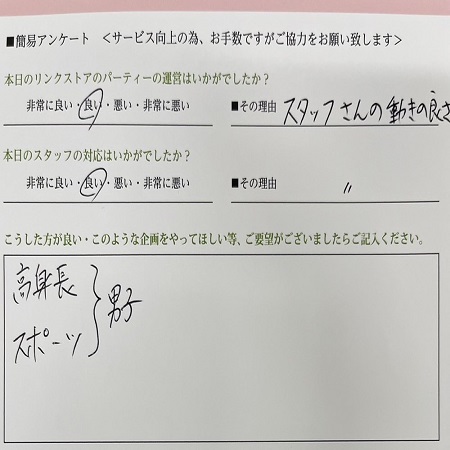 ■簡易アンケート ＜サービス向上の為、お手数ですがご協力をお願い致します＞
本日のリンクストアのパーティーの運営はいかがでしたか？
非常に良い・良い・悪い・非常に悪い ■その理由 スタッフさんの動きの良さ
本日のスタッフの対応はいかがでしたか？
非常に良い・良い・悪い・非常に悪い ■その理由 〃
こうした方が良い・このような企画をやってほしい等、ご要望がございましたらご記入ください。
高身長
スポーツ
男子